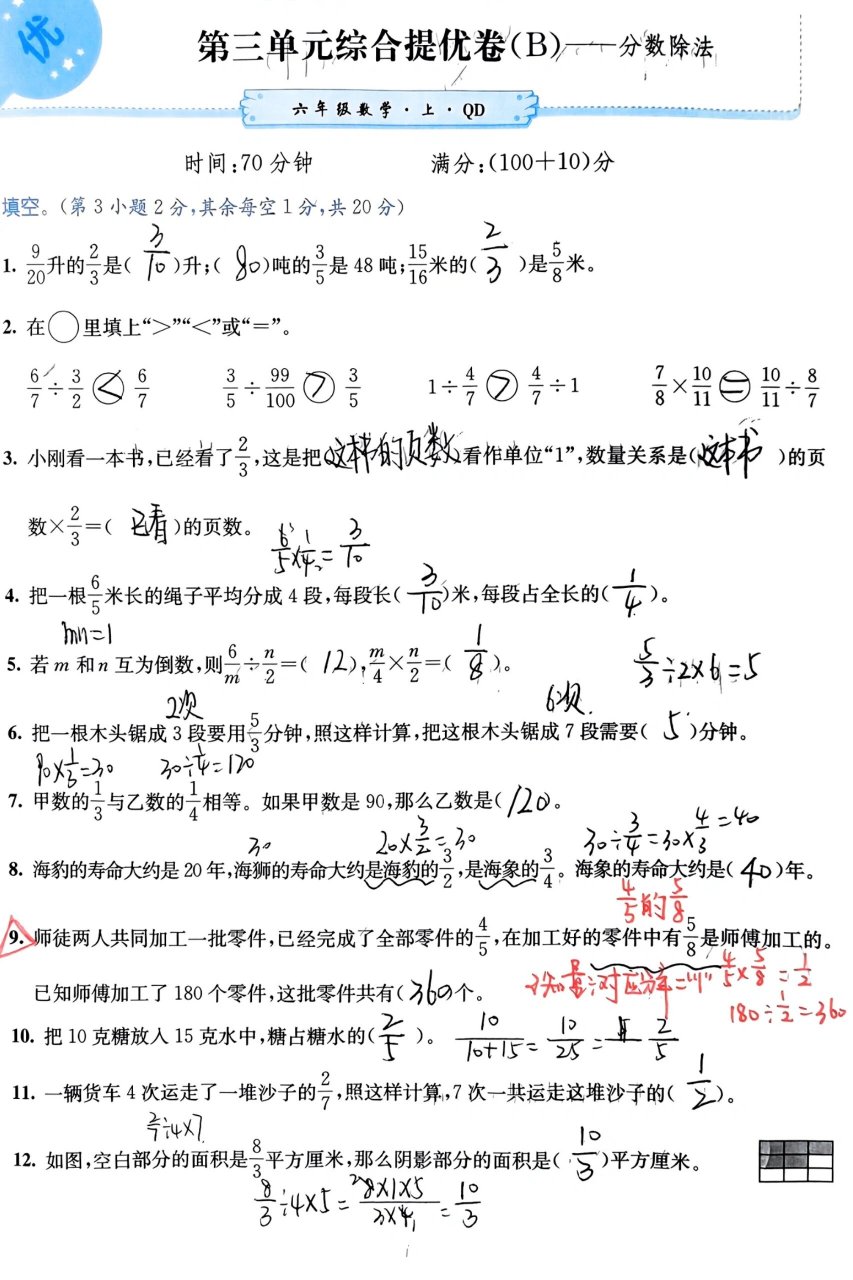 优
第三单元综合提优卷(B)——分数除法
六年级数学·上·QD
时间:70分钟 满分:(100+10)分
填空。(第3小题2分,其余每空1分,共20分)
1. 9/20升的2/3是( 3/10 )升;( 80 )吨的3/5是48吨;15/16米的( 2/3 )是5/8米。
2. 在○里填上“>”“<”或“=”。
6/7÷3/2 < 6/7 3/5÷99/100 > 3/5 1÷4/7 > 4/7÷1 7/8×10/11 = 10/11÷8/7
3. 小刚看一本书,已经看了2/3,这是把(这本书的页数)看作单位“1”,数量关系是(这本书)的页
数×2/3=( 已看 )的页数。
6/5×1/4=3/10
4. 把一根6/5米长的绳子平均分成4段,每段长( 3/10 )米,每段占全长的( 1/4 )。
mn=1
5. 若m和n互为倒数,则6/m÷n/2=( 12 ),m/4×n/2=( 1/8 )。 5/3÷2×6=5
2次 6次
6. 把一根木头锯成3段要用5/3分钟,照这样计算,把这根木头锯成7段需要( 5 )分钟。
90×1/3=30 30÷1/4=120
7. 甲数的1/3与乙数的1/4相等。如果甲数是90,那么乙数是( 120 )。
30 20×3/2=30 30÷3/4=30×4/3=40
8. 海豹的寿命大约是20年,海狮的寿命大约是海豹的3/2,是海象的3/4。海象的寿命大约是( 40 )年。
4/5的5/8
9. 师徒两人共同加工一批零件,已经完成了全部零件的4/5,在加工好的零件中有5/8是师傅加工的。
已知量÷对应分率=“1” 4/5×5/8=1/2
已知师傅加工了180个零件,这批零件共有( 360 )个。
180÷1/2=360
10. 把10克糖放入15克水中,糖占糖水的( 2/5 )。 10/10+15=10/25=2/5
11. 一辆货车4次运走了一堆沙子的2/7,照这样计算,7次一共运走这堆沙子的( 1/2 )。
2/7÷4×7
12. 如图,空白部分的面积是8/3平方厘米,那么阴影部分的面积是( 10/3 )平方厘米。
8/3÷4×5=8×1×5/3×4=10/3